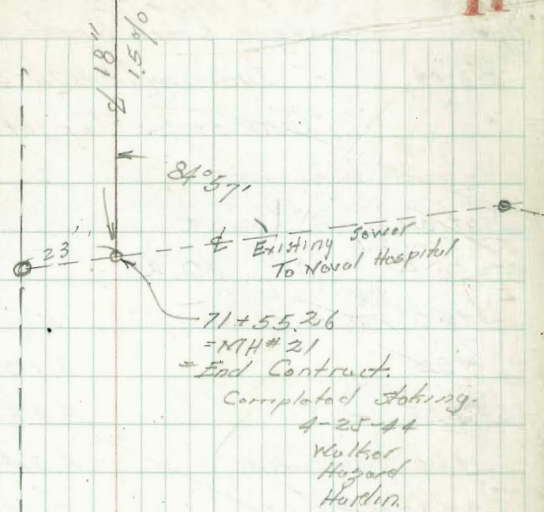 ℄ 18"
1.5%
84°57'
23'
℄ Existing Sewer
To Naval Hospital
71+55.26
=MH#21
=End Contract.
Completed Staking.
4-25-44
Walker
Hazard
Hardin.